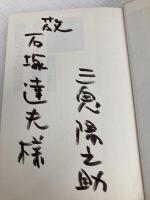 故
石塚達夫様
三鬼陽之助